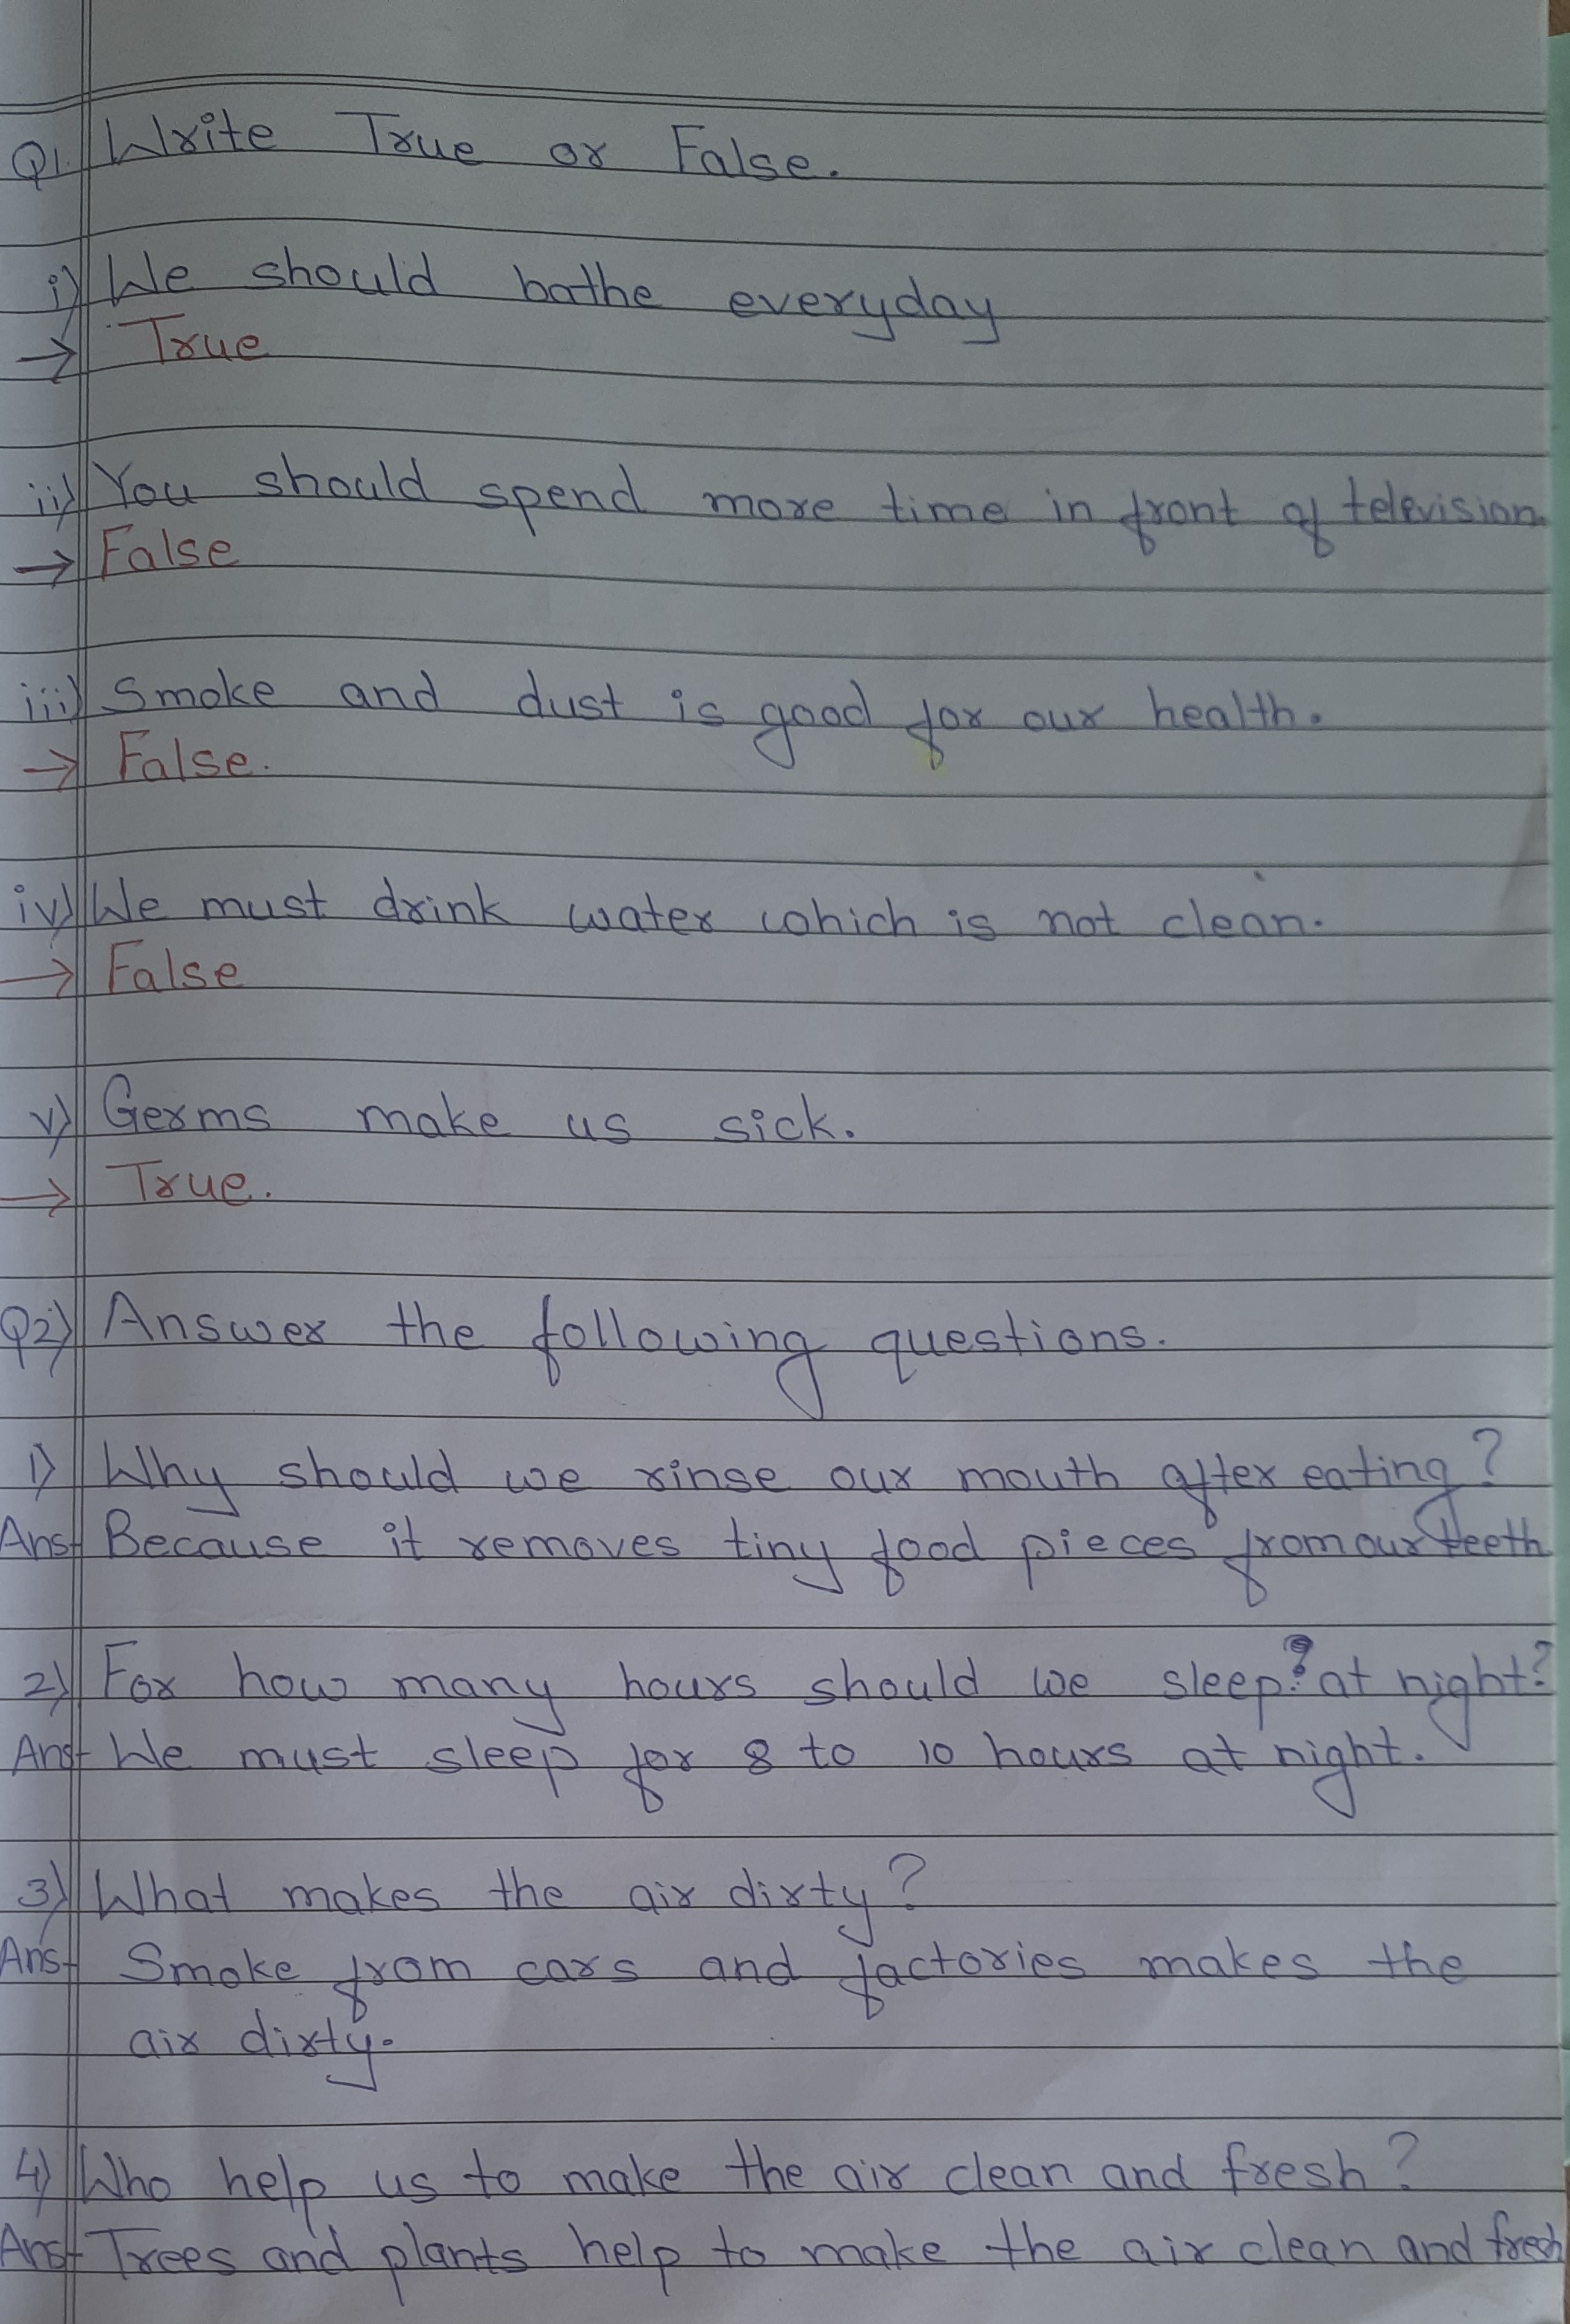 Q1. Write True or False.
i) We should bathe everyday
→ True
ii) You should spend more time in front of television.
→ False
iii) Smoke and dust is good for our health.
→ False.
iv) We must drink water which is not clean.
→ False
v) Germs make us sick.
→ True.
Q2) Answer the following questions.
1) Why should we rinse our mouth after eating?
Ans→ Because it removes tiny food pieces from our teeth
2) For how many hours should we sleep? at night?
Ans→ We must sleep for 8 to 10 hours at night.
3) What makes the air dirty?
Ans→ Smoke from cars and factories makes the
air dirty.
4) Who help us to make the air clean and fresh?
Ans→ Trees and plants help to make the air clean and fresh